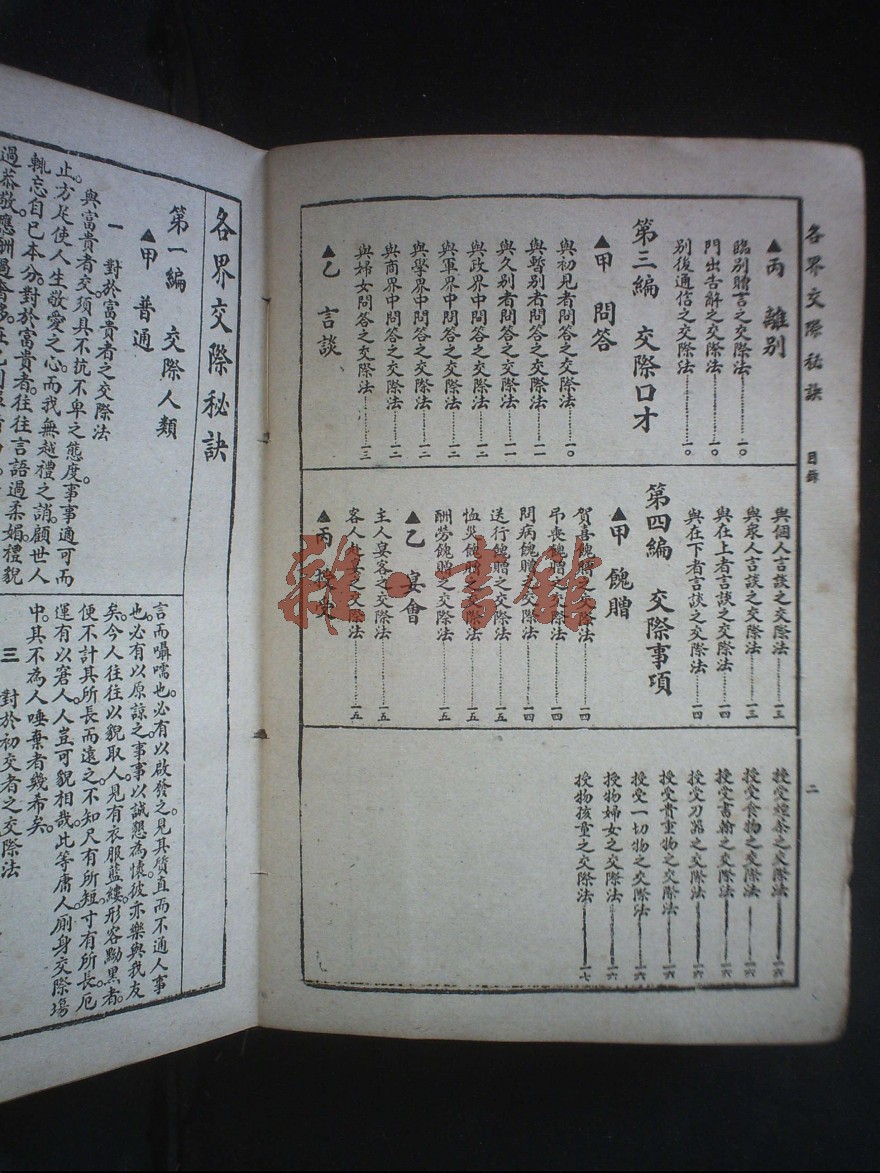 各界交際秘訣 目錄
二
▲丙 離別
臨別贈言之交際法……一〇
門出告辭之交際法……一〇
別後通信之交際法……一〇
第三編 交際口才
▲甲 問答
與初見者問答之交際法……一〇
與暫別者問答之交際法……一一
與久別者問答之交際法……一一
與政界中問答之交際法……一二
與軍界中問答之交際法……一二
與學界中問答之交際法……一二
與商界中問答之交際法……一二
與婦女問答之交際法……一三
▲乙 言談
與個人言談之交際法……一三
與衆人言談之交際法……一三
與在上者言談之交際法……一四
與在下者言談之交際法……一四
第四編 交際事項
▲甲 餽贈
賀喜餽贈之交際法……一四
弔喪餽贈之交際法……一四
問病餽贈之交際法……一四
送行餽贈之交際法……一五
恤災餽贈之交際法……一五
酬勞餽贈之交際法……一五
▲乙 宴會
主人宴客之交際法……一五
客人赴宴之交際法……一五
▲丙 授受
授受煙茶之交際法……一六
授受食物之交際法……一六
授受書翰之交際法……一六
授受刀器之交際法……一六
授受貴重物之交際法……一六
授受一切物之交際法……一六
授物婦女之交際法……一六
授物孩童之交際法……一七
各界交際秘訣
第一編 交際人類
▲甲 普通
一 對於富貴者之交際法
與富貴者交須具不抗不卑之態度事事適可而
止。方足使人生敬愛之心。而我無越禮之誚。顧世人
輒忘自己本分。對於富貴者。往往言語過柔媚。禮貌
過恭敬。應酬過奢侈。
言而囁嚅也。必有以啟發之。見其質直而不通人事
也。必有以原諒之。事事以誠懇為懷。彼亦樂與我友
矣。今人往往以貌取人。見有衣服藍縷。形容黝黑者。
便不計其所長而遠之。不知尺有所短。寸有所長。厄
運有以窘人。人豈可貌相哉。此等庸人。廁身交際場
中。其不為人唾棄者幾希矣。
三 對於初交者之交際法
雜·書館